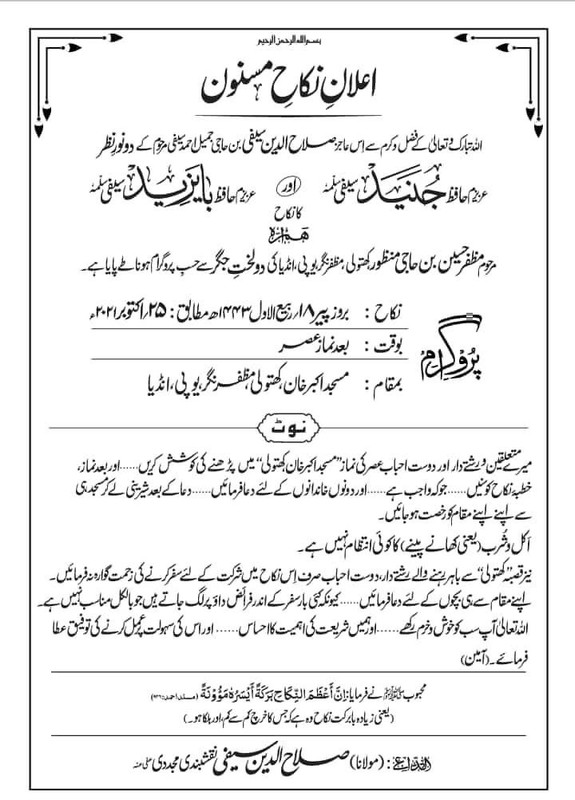 بسم اللہ الرحمن الرحیم
اعلانِ نکاحِ مسنون
اللہ تبارک و تعالیٰ کے فضل و کرم سے اِس عاجز صلاح الدین سیفی بن حاجی جمیل احمد سیفی مرحوم کے دو نورِ نظر
عزیزم حافظ جُنَید سیفی سلّمہٗ اور عزیزم حافظ بایَزِید سیفی سلّمہٗ
کا نکاح
ہمراہ
مرحوم مظفر حسین بن حاجی منظور کھتولی، مظفر نگر یو پی، انڈیا کی دو لختِ جگر سے حسب پروگرام ہونا طے پایا ہے۔
پروگرام
نکاح : بروز پیر ۱۸/ ربیع الاول ۱۴۴۳ھ مطابق: ۲۵/ اکتوبر ۲۰۲۱ء
بوقت : بعد نماز عصر
بمقام : مسجد اکبر خان، کھتولی، مظفر نگر، یو پی، انڈیا
نوٹ
میرے متعلقین و رشتے دار اور دوست احباب عصر کی نماز ”مسجد اکبر خان کھتولی“ میں پڑھنے کی کوشش کریں...... اور بعد نماز،
خطبۂ نکاح کو سنیں...... جو کہ واجب ہے...... اور دونوں خاندانوں کے لئے دعا فرمائیں...... دعا کے بعد شیرینی لے کر مسجد ہی
سے اپنے اپنے مقام کو رخصت ہو جائیں۔
اکل و شُرب (یعنی کھانے پینے) کا کوئی انتظام نہیں ہے۔
نیز قصبہ ”کھتولی“ سے باہر رہنے والے رشتے دار، دوست احباب صرف اِس نکاح میں شرکت کے لئے سفر کرنے کی زحمت گوارہ نہ فرمائیں۔
اپنے مقام سے ہی بچوں کے لئے دعا فرمائیں...... کیونکہ کئی بار سفر کے اندر فرائض داؤ پر لگ جاتے ہیں جو بالکل مناسب نہیں ہے۔
اللہ تعالیٰ آپ سب کو خوش و خرم رکھے...... اور ہمیں شریعت کی اہمیت کا احساس...... اور اس کی سہولت پر عمل کرنے کی توفیق عطا
فرمائے۔ (آمین)
محبوب ﷺ نے فرمایا: اِنَّ أَعْظَمَ النِّكَاحِ بَرَكَةً أَيْسَرُهٗ مَؤُوْنَةً (مسند احمد:)
(یعنی زیادہ بابرکت نکاح وہ ہے کہ جس کا خرچ کم سے کم، اور ہلکا ہو۔)
(مولانا) صلاح الدین سیفی نقشبندی مجددی عفی عنہ